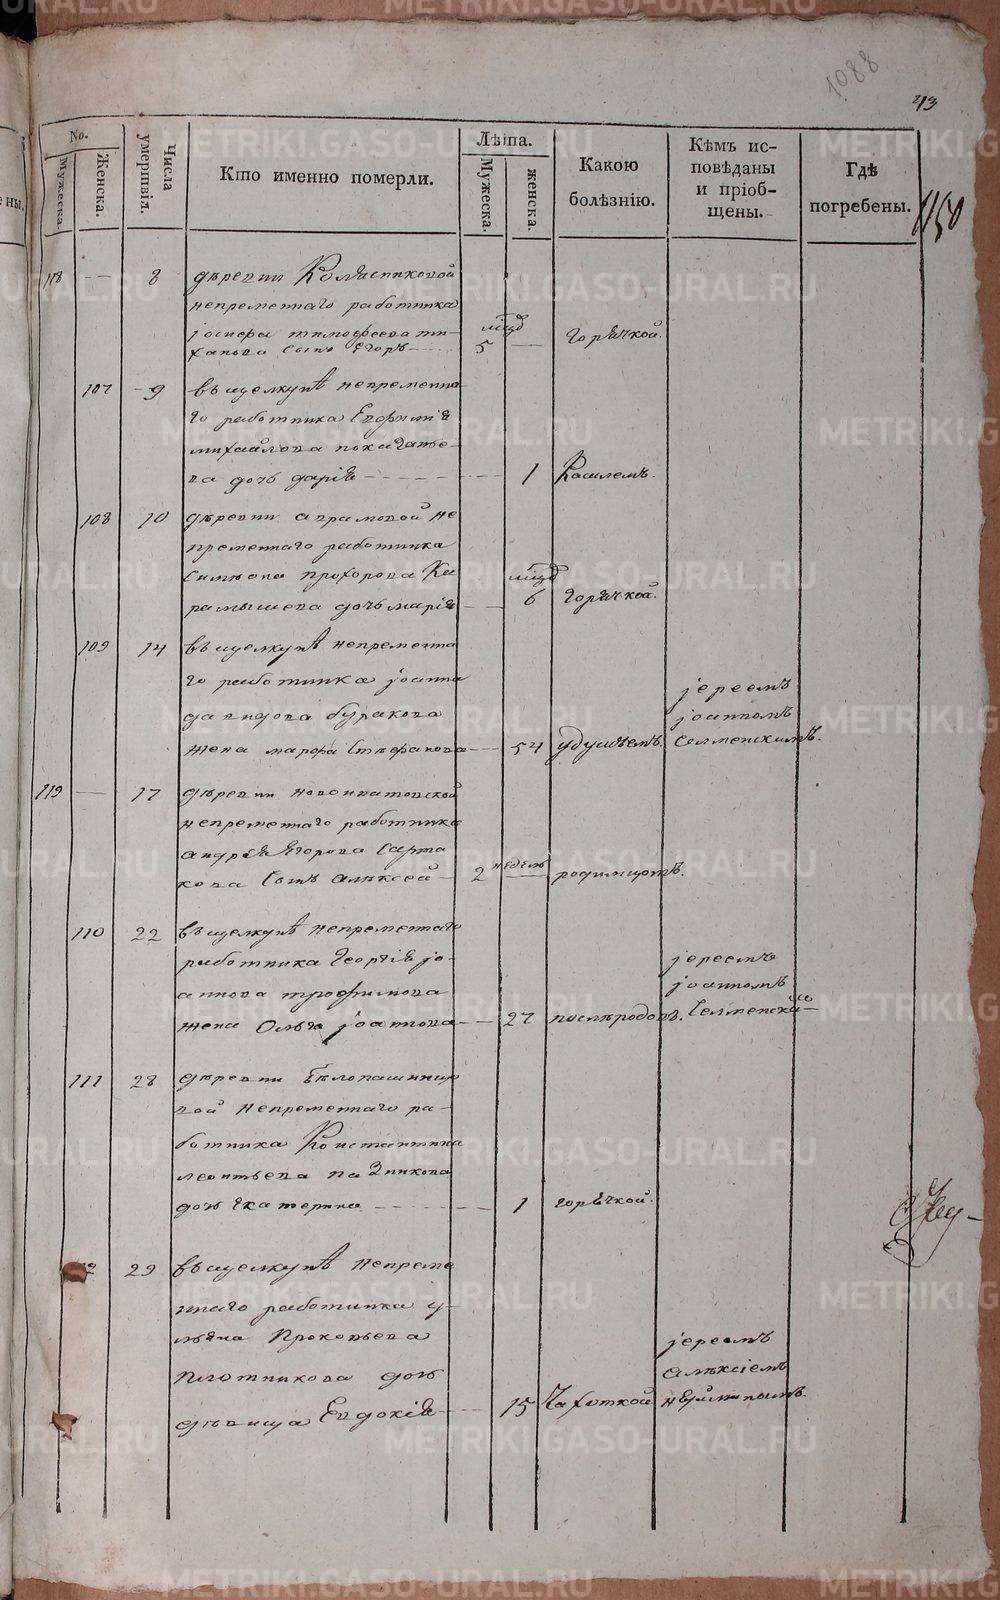 1088
43
1150
No.
Мужеска.
Женска.
Числа умершвія.
Кто именно померли.
Лѣта.
Мужеска.
женска.
Какою болѣзнію.
Кѣмъ исповѣданы и пріобщены.
Гдѣ погребены.
118 — 8 деревни
непременнаго работника
іосифа тимофеева ти-
ханова сынъ Егоръ
мѣсяцъ
5 — горячкой.
107 9 въ щелкунѣ непременна-
го работника Евфимія
михайлова
ва дочь дарія 1 Кашлемъ.
108 10 деревни аврамовой не
пременнаго работника
Симеона прохорова Ка
рамышева дочь марія 6 горячкой.
109 14 въ щелкунѣ непременна
го работника іоанна
давидова буракова
жена марфа Стефанова 54 удушьемъ.
іереемъ
іоанномъ
Селменскимъ.
119 — 17 деревни новоипатовской
непременнаго работника
андрея Егорова Сарта
кова Сынъ алексей 2 недель родимцомъ.
110 22 въ щелкунѣ непременнаго
работника Георгія іо-
аннова трофимова
жена Ольга іоаннова 27 послѣ родовъ.
іереемъ
іоанномъ
Селменским
111 28 деревни бѣлопашинце
вой непременнаго ра-
ботника Константина
леонтьева
дочь екатерина 1 горячкой.
2 29 въ щелкунѣ непреме
ннаго работника у-
льяна Прокопьева
плотникова дочь
девица Евдокія 15 Чахоткой
іереемъ
алексіемъ